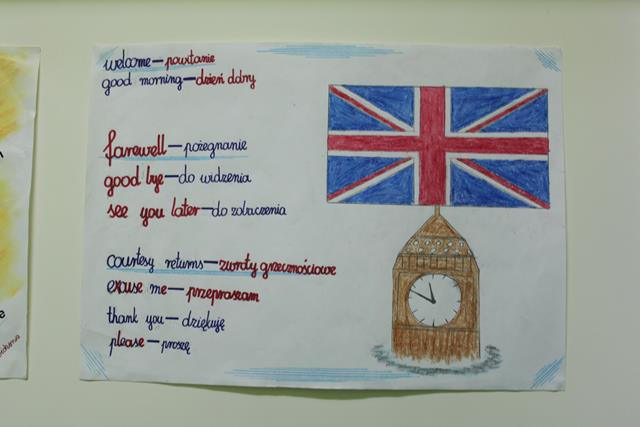 welcome—powitanie
good morning—dzień dobry
farewell—pożegnanie
good bye—do widzenia
see you later—do zobaczenia
courtesy returns—zwroty grzecznościowe
excuse me—przepraszam
thank you—dziękuję
please—proszę